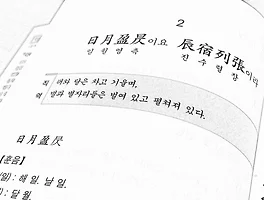 2
日月盈昃이요 辰宿列張이라
일 월 영 측 진 수 열 장
직역 해와 달은 차고 기울며,
별과 별자리들은 벌여 있고 펼쳐져 있다.
日月盈昃
【훈음】
(일) : 해 일. 날 일.
: 달 월.